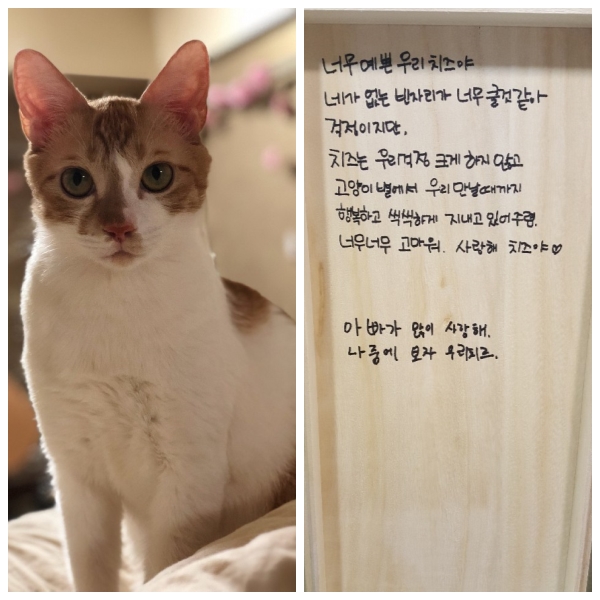 너무 예쁜 우리 치즈야
네가 없는 빈자리가 너무 클것같아
걱정이지만,
치즈는 우리걱정 크게 하지 않고
고양이 별에서 우리 만날때까지
행복하고 씩씩하게 지내고 있어주렴.
너무너무 고마워. 사랑해 치즈야♡
아빠가 많이 사랑해.
나중에 보자 우리치즈.